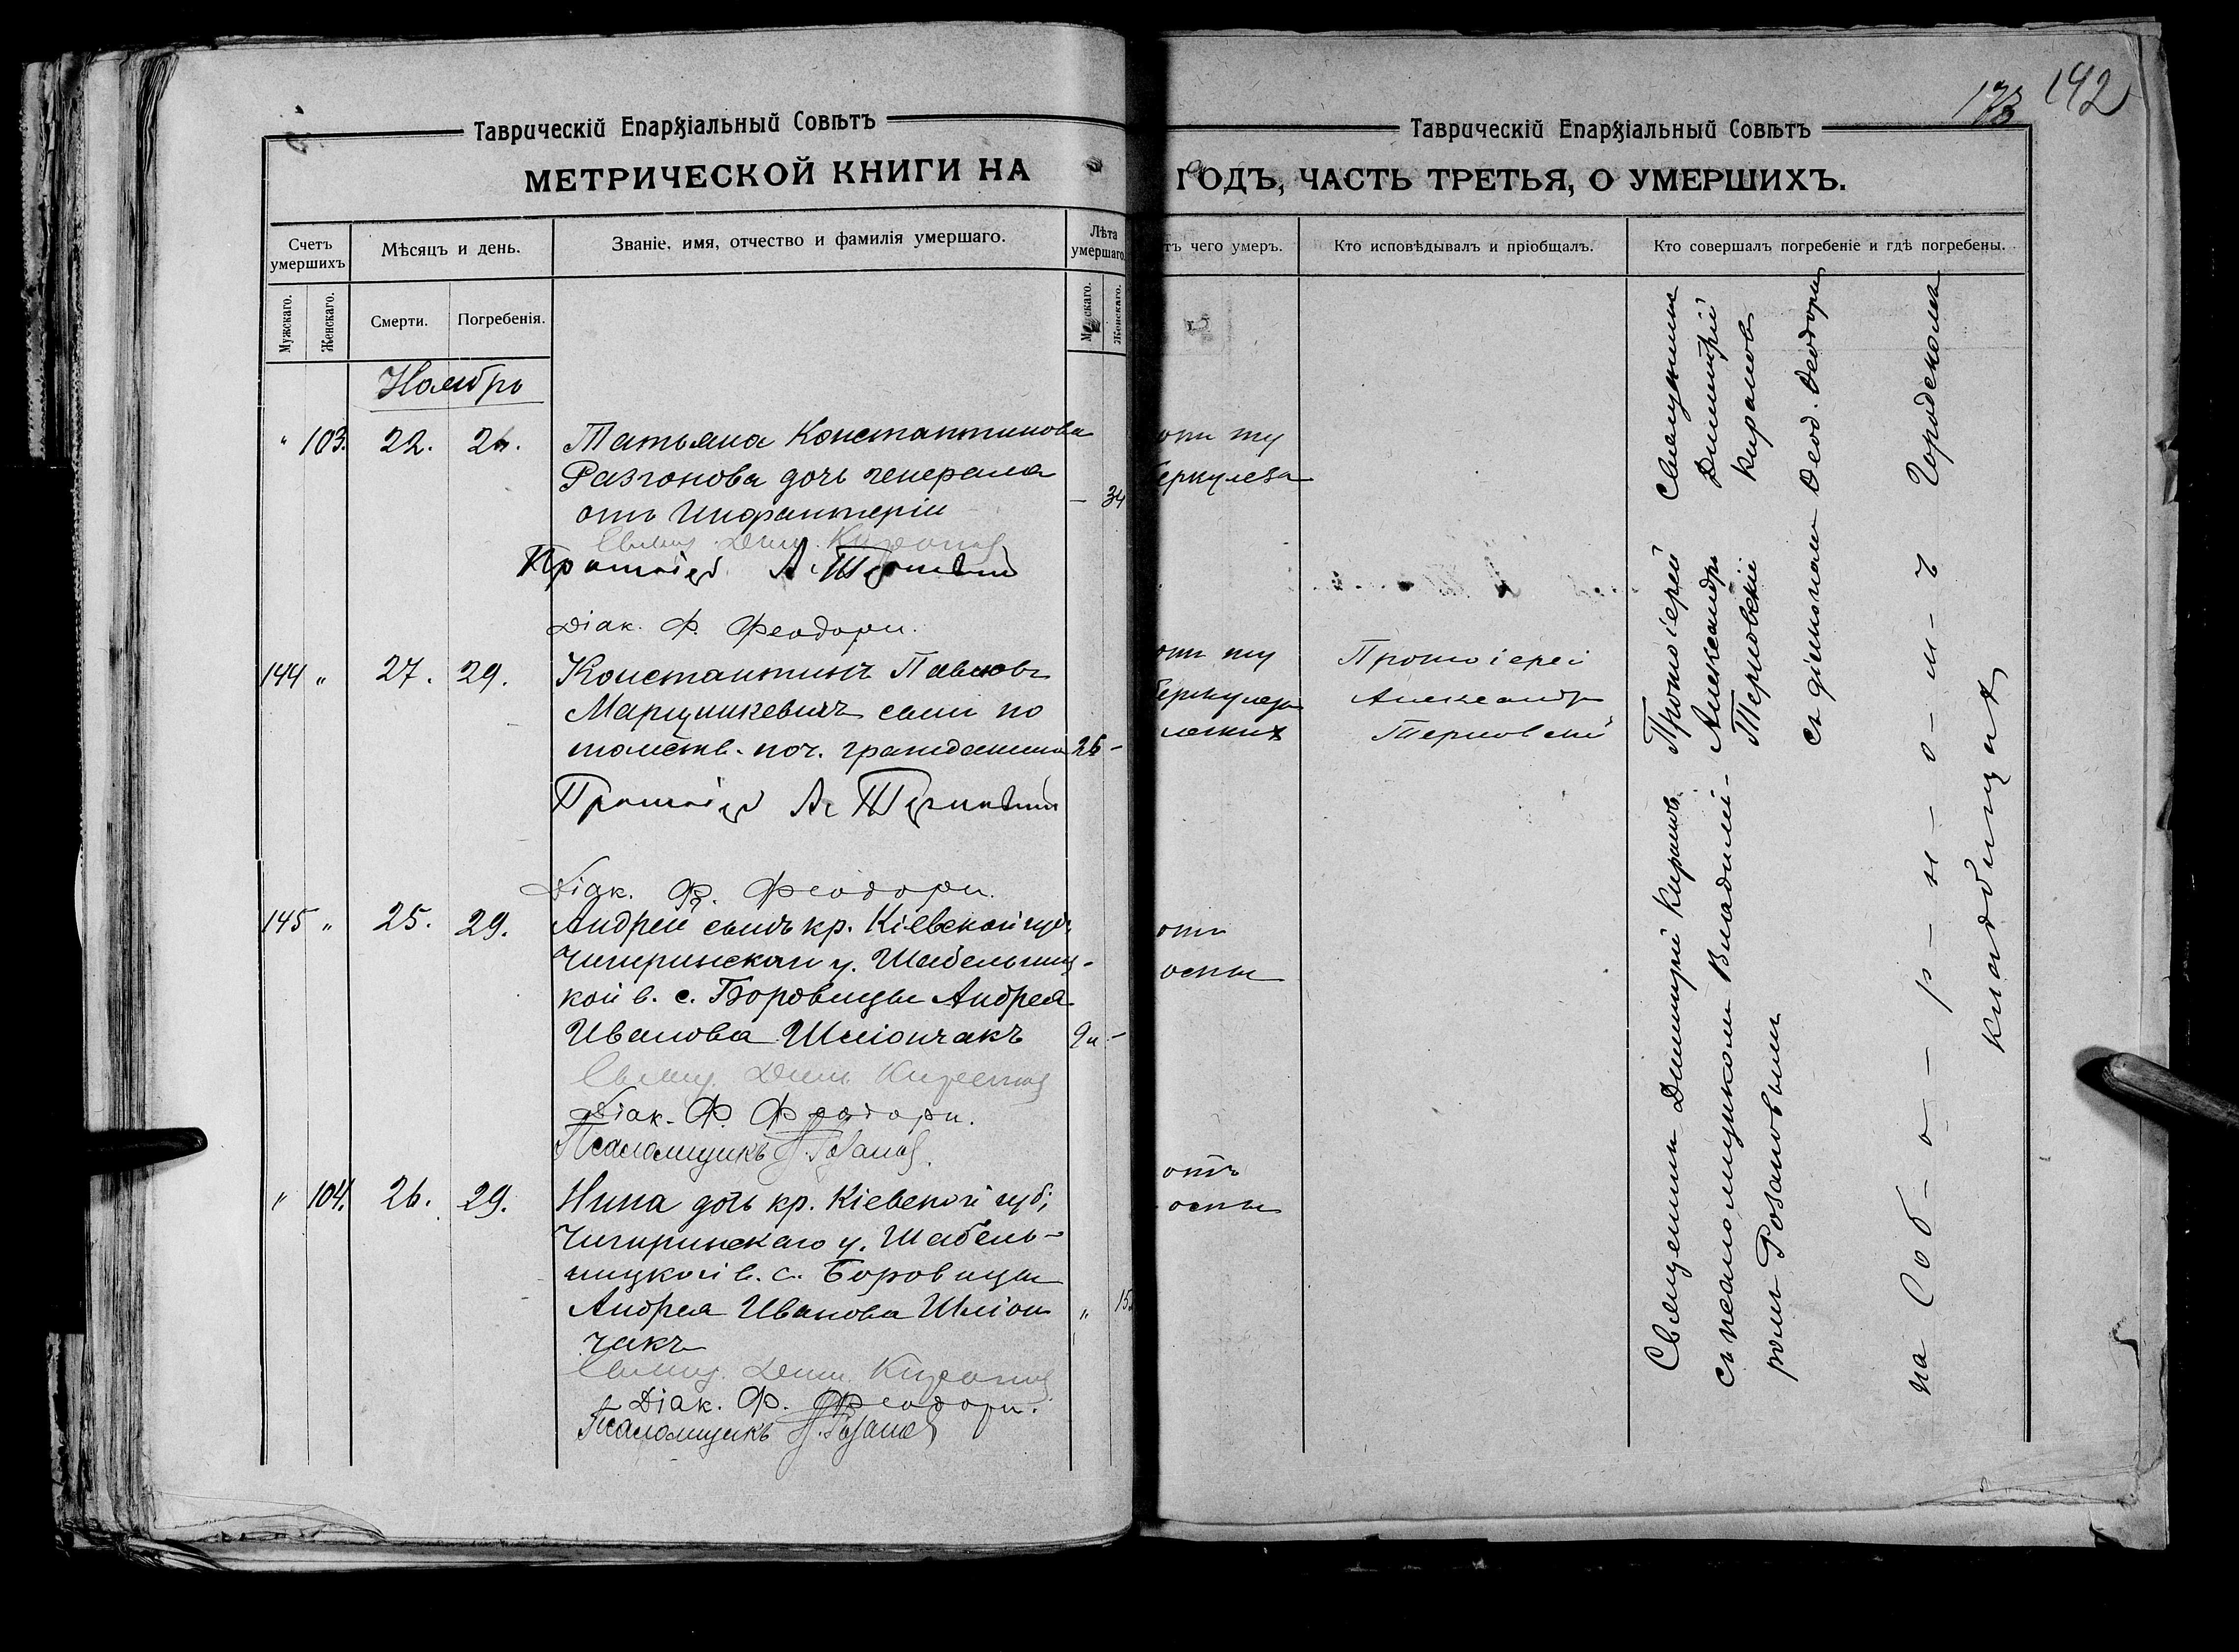 Таврическій Епархіальный Совѣтъ
МЕТРИЧЕСКОЙ КНИГИ НА
Счетъ умершихъ
Мѣсяцъ и день.
Званіе, имя, отчество и фамилія умершаго.
Лѣта умершаго.
Мужскаго.
Женскаго.
Смерти.
Погребенія.
Женскаго.
Ноябрь
" 103. 22. 24.
Татьяна Константинова
Разгонова дочь генерала
отъ Инфантеріи
— 34
Протоіер А. Терновскій
Діак. Ф. Феодори.
144 " 27. 29.
Константинъ Павловъ
Марцинкевичъ сынъ по
томств. поч. гражданина 25 -
Протоіер А. Терновскій
Діак. Ф. Феодори.
145 " 25. 29.
Андрей сынъ кр. Кіевской губ.
Чигиринскаго у. Шабельниц-
кой в. с. Боровицы Андрея
Иванова 9 -
Свящ. Дим. Киранов
Діак. Ф. Феодори.
Псаломщикъ В. Розанов.
" 104. 26. 29.
Нина дочь кр. Кіевской губ.
Чигиринскаго у. Шабель-
ницкой в. с. Боровицы
Андрея Иванова
чакъ
Свящ. Дим. Киранов
Діак. Ф. Феодори.
Псаломщикъ В. Розанов
173 142
Таврическій Епархіальный Совѣтъ
ГОДЪ, ЧАСТЬ ТРЕТЬЯ, О УМЕРШИХЪ.
тъ чего умеръ.
Кто исповѣдывалъ и пріобщалъ.
Кто совершалъ погребеніе и гдѣ погребены.
отъ ту
беркулеза
отъ ту
беркулеза
легкихъ
Протоіерей
Александръ
Терновскій
отъ
оспы
отъ
оспы
Священникъ
Димитрій
Кирановъ
Протоіерей
Александръ
Терновскій
съ діакономъ Феод. Феодори
Священникъ Димитрій Кирановъ
съ псаломщикомъ Владимі-
ромъ Розановымъ
на Соб-о-р-н-о-м-ъ Городскомъ
кладбищѣ